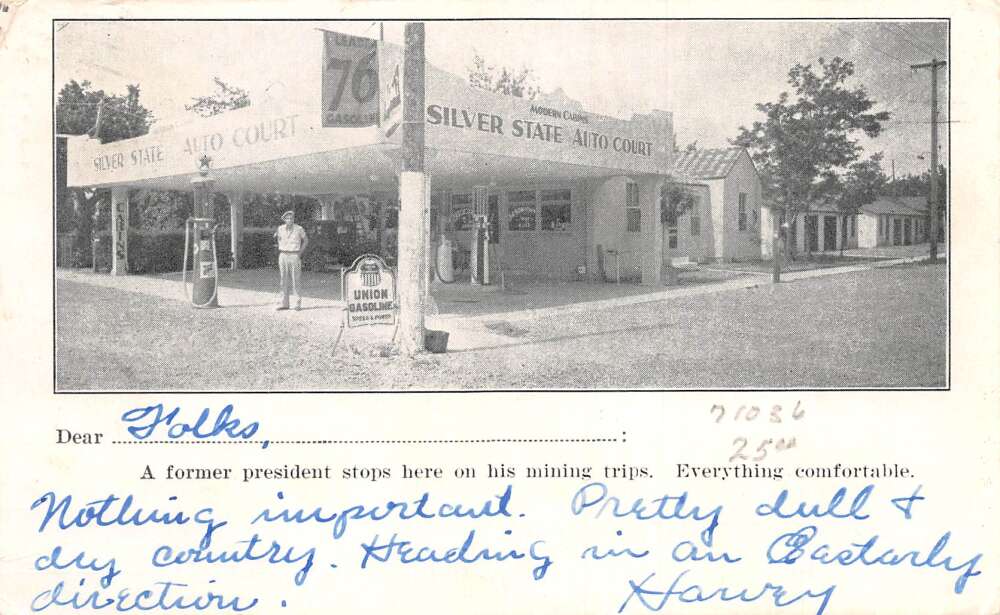 76
GASOLINE
MODERN CABINS
SILVER STATE AUTO COURT
SILVER STATE AUTO COURT
CABINS
UNION
GASOLINE
Dear Folks, :
71036
25⁰⁰
A former president stops here on his mining trips. Everything comfortable.
Nothing important. Pretty dull &
dry country. Heading in an Eastarly
direction. Harvey